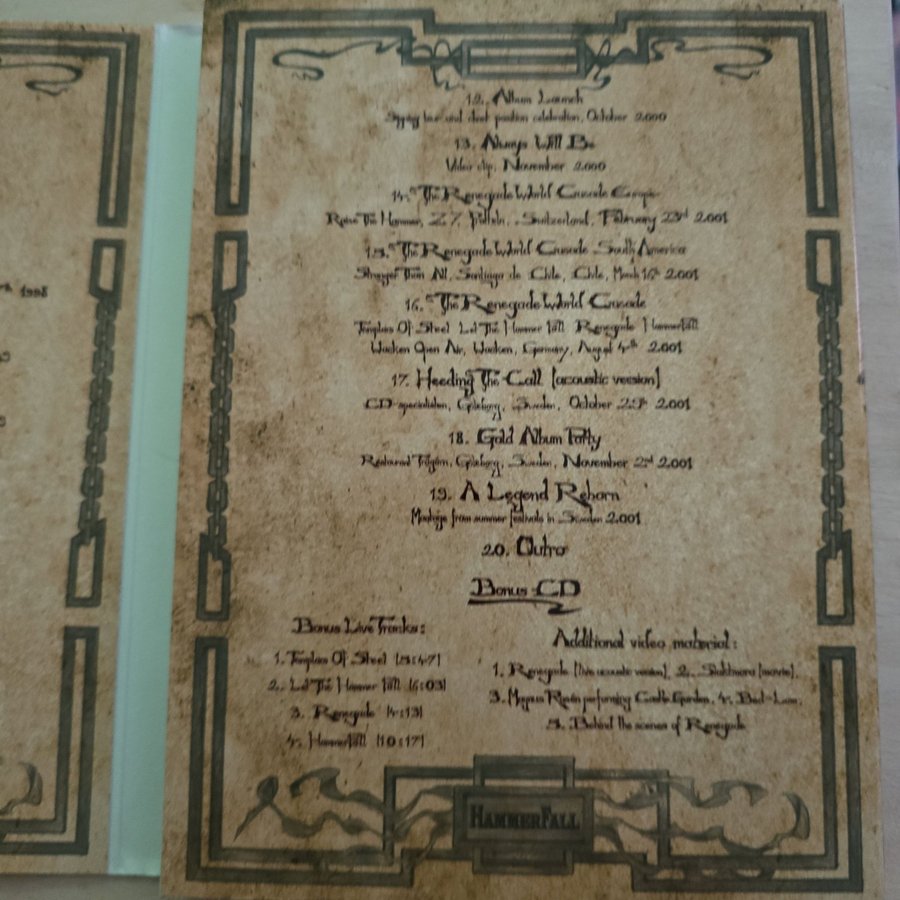 th 1998
12. Album Launch
Signing tour and chart position celebration, October 2000
13. Always Will Be
Video clip, November 2000
14. The Renegade World Crusade Europe
Raise The Hammer, Z7, Pratteln, Switzerland, February 23rd 2001
15. The Renegade World Crusade South America
Stronger Than All, Santiago de Chile, Chile, March 16th 2001
16. The Renegade World Crusade
Templars Of Steel Let The Hammer Fall Renegade HammerFall
Wacken Open Air, Wacken, Germany, August 4th 2001
17. Heeding The Call [acoustic version]
CD-specialisten, Göteborg, Sweden, October 29th 2001
18. Gold Album Party
Restaurand Trägårn, Göteborg, Sweden, November 2nd 2001
19. A Legend Reborn
Montage from summer festivals in Sweden 2001
20. Outro
Bonus-CD
Bonus Live Tracks:
1. Templars Of Steel [5:47]
2. Let The Hammer Fall [6:03]
3. Renegade [4:13]
4. HammerFall [10:17]
Additional video material:
1. Renegade [live acoustic version], 2. [movie],
3. Magnus Rosén performing Castle Garden, 4. Bad-Lam,
5. Behind the scenes of Renegade
HAMMERFALL